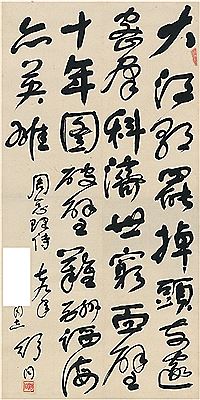 大江歌罢掉頭东邃
密群科濟世窮面壁
十年圖破壁難酬蹈海
亦英雄
周总理诗
舒同